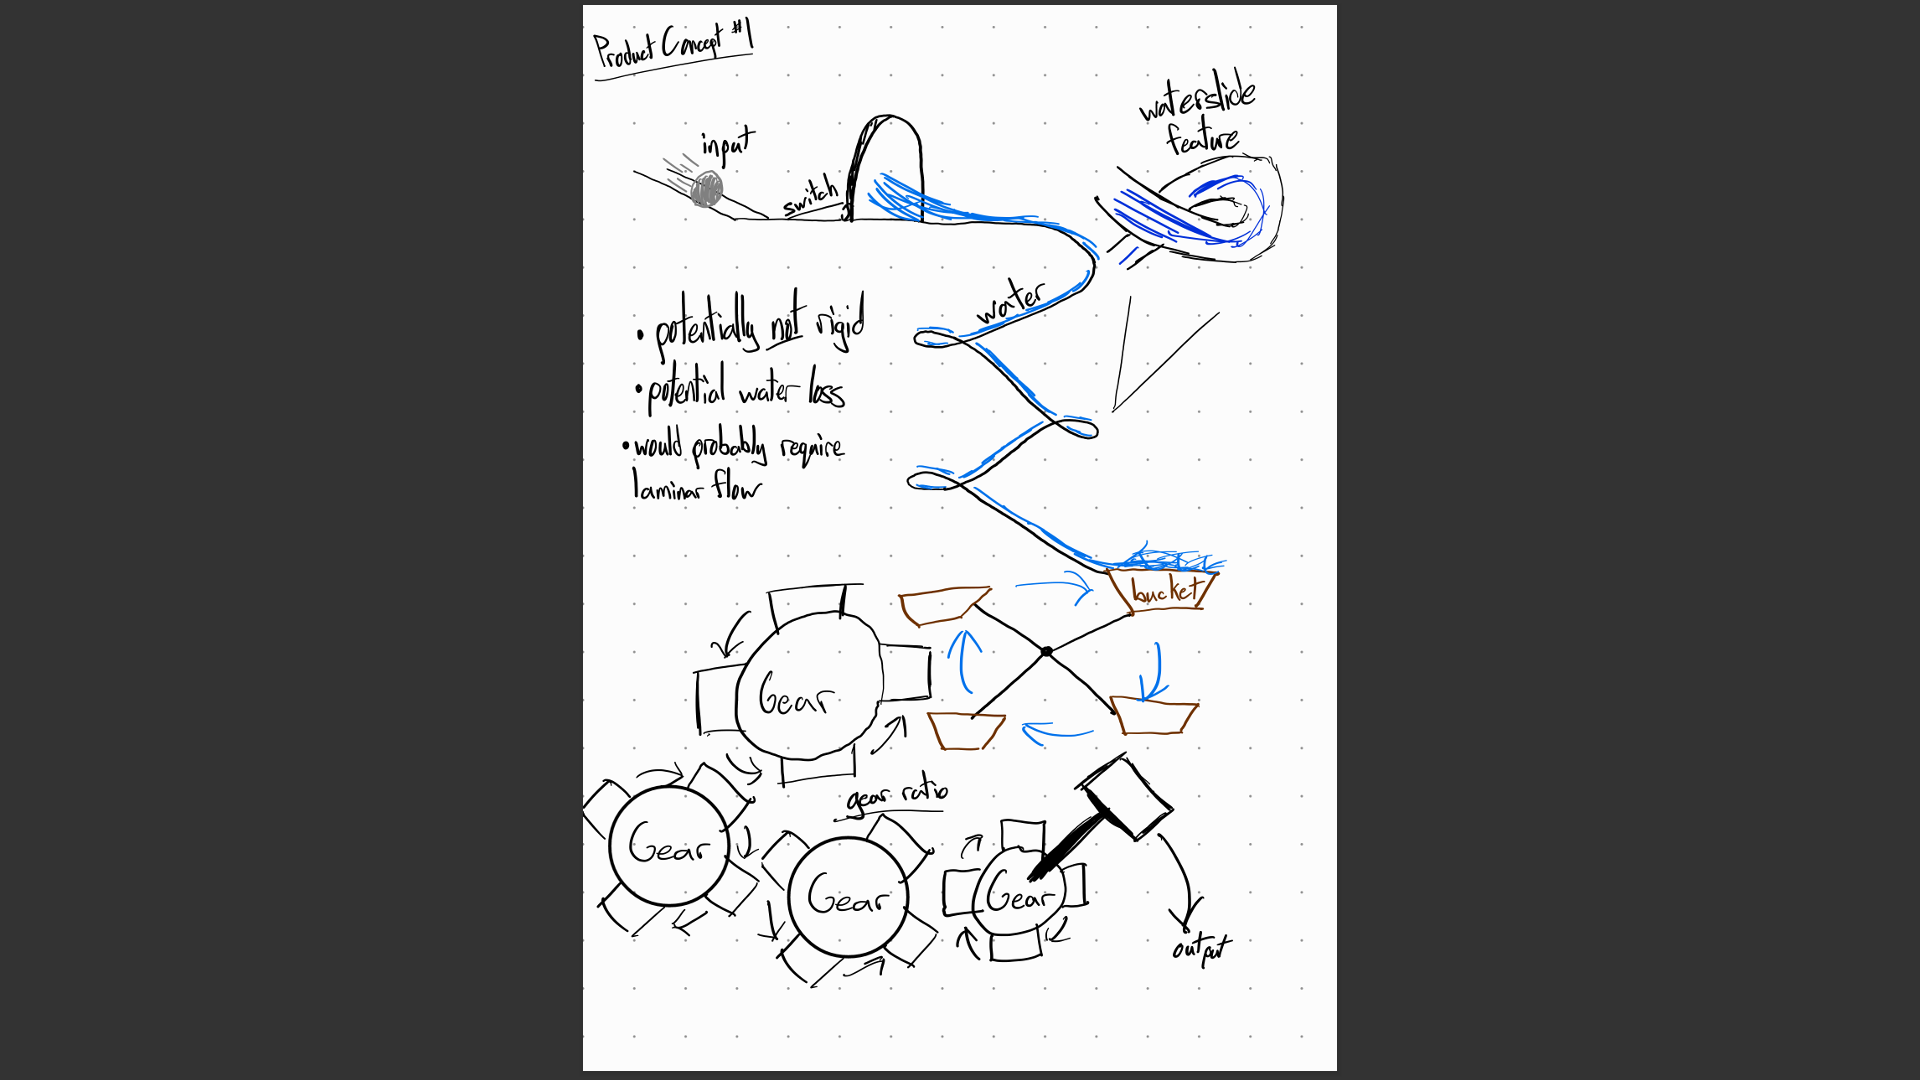 Product Concept #1
waterslide
feature
input
switch
water
• potentially not rigid
• potential water loss
• would probably require
laminar flow
bucket
Gear
gear ratio
Gear
Gear
Gear
output